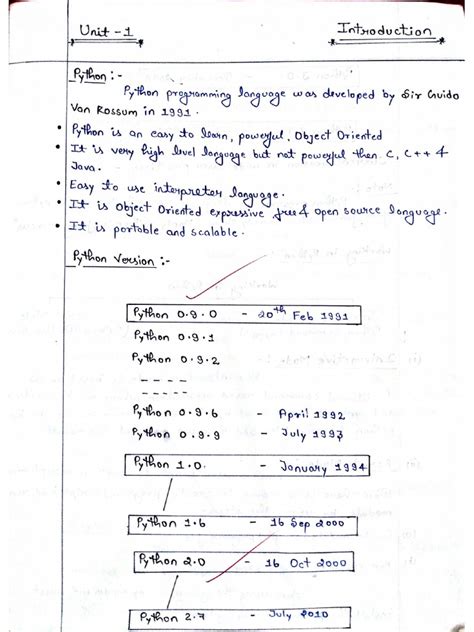 Unit - 1
Introduction
Python :-
Python programming language was developed by Sir Guido
Van Rossum in 1991.
• Python is an easy to learn, powerful, Object Oriented
• It is very high level language but not powerful then C, C++ &
Java.
• Easy to use interpreter language.
• It is Object Oriented expressive free & open source language.
• It is portable and scalable.
Python Version :-
Python 0.9.0 - 20th Feb 1991
Python 0.9.1
Python 0.9.2
- - - -
- - - -
Python 0.9.6 - April 1992
Python 0.9.9 - July 1993
Python 1.0. - January 1994
Python 1.6 - 16 Sep 2000
Python 2.0 - 16 Oct 2000
Python 2.7 - July 2010